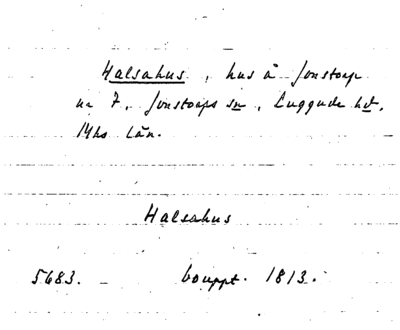 Halsahus, hus å Jonstorp
nr 7, Jonstorps sn, Luggude hd,
Mhs län.
Halsahus
5683. bouppt. 1813.